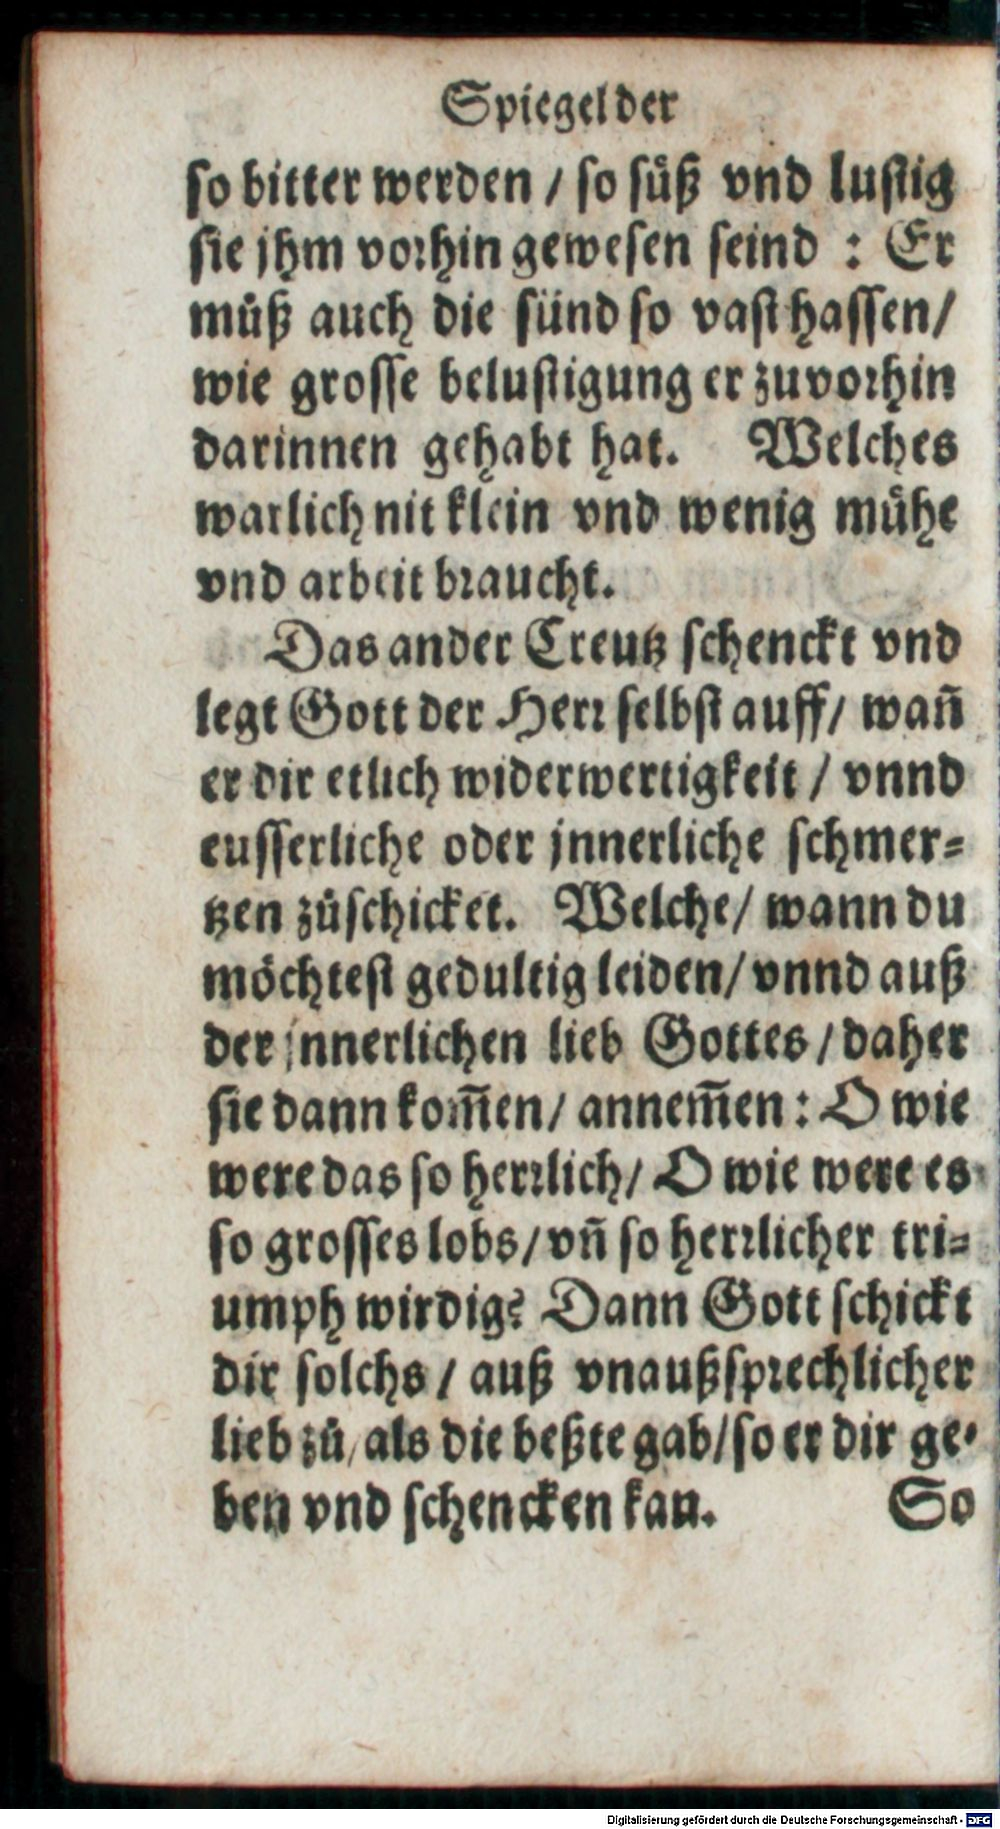 Spiegel der
so bitter werden / so süß vnd lustig
sie jhm vorhin gewesen seind : Er
muͦß auch die sünd so vast hassen/
wie grosse belustigung er zuvorhin
darinnen gehabt hat. Welches
warlich nit klein vnd wenig muͤhe
vnd arbeit braucht.
Das ander Creutz schenckt vnd
legt Gott der Herr selbst auff/ wañ
er dir etlich widerwertigkeit / vnnd
eusserliche oder jnnerliche schmer=
tzen zuͦschicket. Welche/ wann du
möchtest gedultig leiden/ vnnd auß
der jnnerlichen lieb Gottes / daher
sie dann kom̃en/ annem̃en : O wie
were das so herrlich/ O wie were es
so grosses lobs/ vñ so herrlicher tri=
umph wirdig? Dann Gott schickt
dir solchs / auß vnaußsprechlicher
lieb zuͦ/ als die beßte gab/ so er dir ge=
ben vnd schencken kan. So
Digitalisierung gefördert durch die Deutsche Forschungsgemeinschaft - DFG